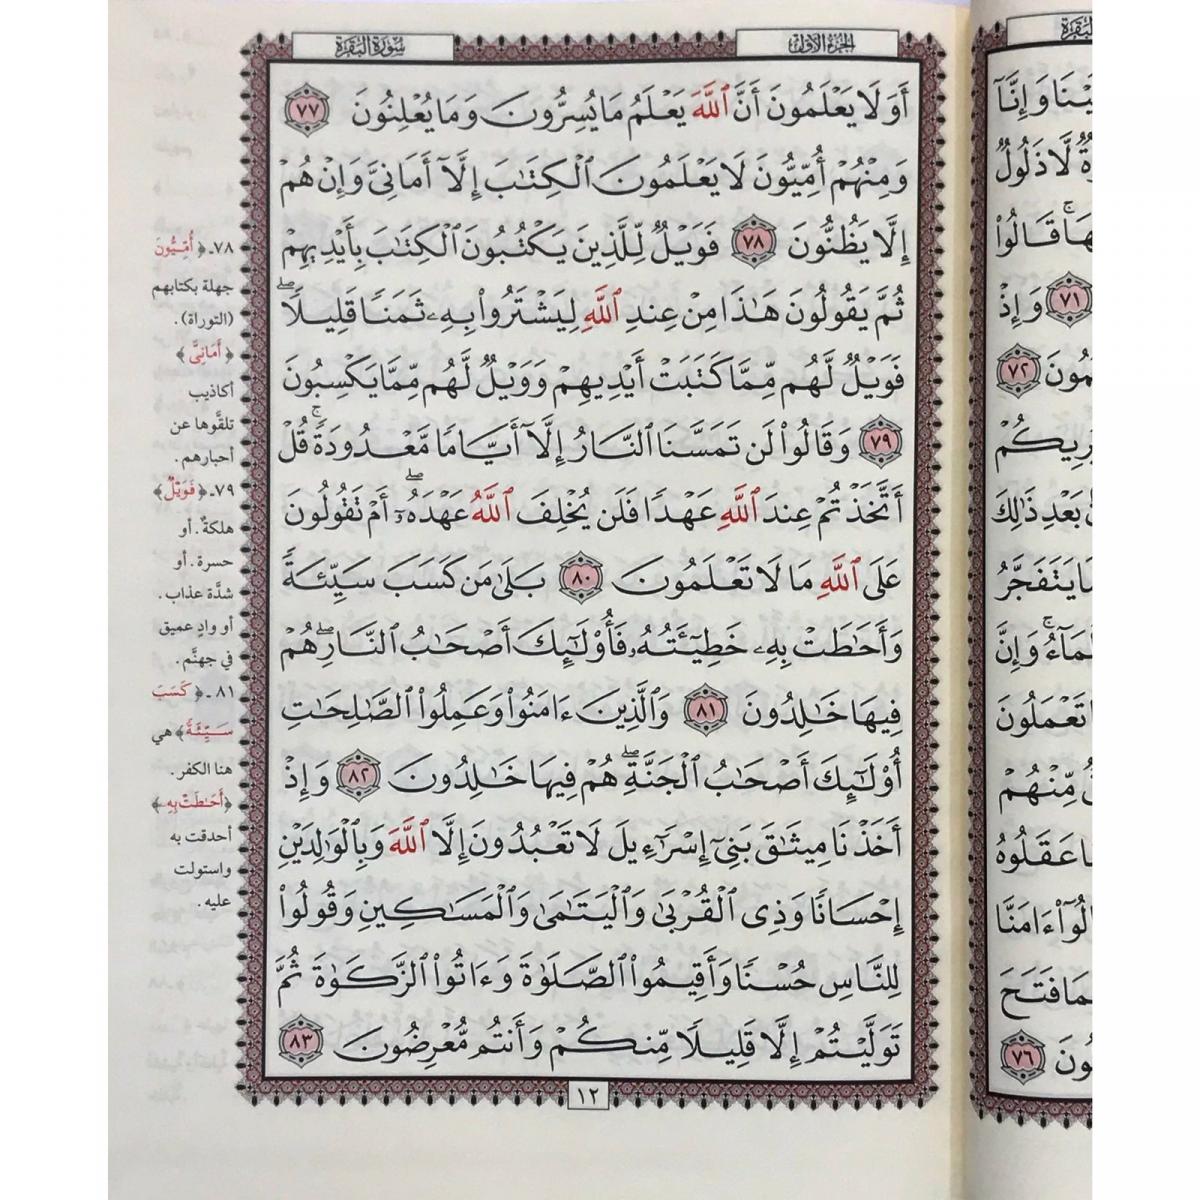 الجزء الأول
سورة البقرة
أَوَلَا يَعْلَمُونَ أَنَّ ٱللَّهَ يَعْلَمُ مَا يُسِرُّونَ وَمَا يُعْلِنُونَ ٧٧
وَمِنْهُمْ أُمِّيُّونَ لَا يَعْلَمُونَ ٱلْكِتَٰبَ إِلَّآ أَمَانِىَّ وَإِنْ هُمْ
إِلَّا يَظُنُّونَ ٧٨ فَوَيْلٌ لِّلَّذِينَ يَكْتُبُونَ ٱلْكِتَٰبَ بِأَيْدِيهِمْ
ثُمَّ يَقُولُونَ هَٰذَا مِنْ عِندِ ٱللَّهِ لِيَشْتَرُوا۟ بِهِۦ ثَمَنًا قَلِيلًا ۖ
فَوَيْلٌ لَّهُم مِّمَّا كَتَبَتْ أَيْدِيهِمْ وَوَيْلٌ لَّهُم مِّمَّا يَكْسِبُونَ
٧٩ وَقَالُوا۟ لَن تَمَسَّنَا ٱلنَّارُ إِلَّآ أَيَّامًا مَّعْدُودَةً ۚ قُلْ
أَتَّخَذْتُمْ عِندَ ٱللَّهِ عَهْدًا فَلَن يُخْلِفَ ٱللَّهُ عَهْدَهُۥٓ ۖ أَمْ تَقُولُونَ
عَلَى ٱللَّهِ مَا لَا تَعْلَمُونَ ٨٠ بَلَىٰ مَن كَسَبَ سَيِّئَةً
وَأَحَٰطَتْ بِهِۦ خَطِيٓـَٔتُهُۥ فَأُو۟لَٰٓئِكَ أَصْحَٰبُ ٱلنَّارِ ۖ هُمْ
فِيهَا خَٰلِدُونَ ٨١ وَٱلَّذِينَ ءَامَنُوا۟ وَعَمِلُوا۟ ٱلصَّٰلِحَٰتِ
أُو۟لَٰٓئِكَ أَصْحَٰبُ ٱلْجَنَّةِ ۖ هُمْ فِيهَا خَٰلِدُونَ ٨٢ وَإِذْ
أَخَذْنَا مِيثَٰقَ بَنِىٓ إِسْرَٰٓءِيلَ لَا تَعْبُدُونَ إِلَّا ٱللَّهَ وَبِٱلْوَٰلِدَيْنِ
إِحْسَانًا وَذِى ٱلْقُرْبَىٰ وَٱلْيَتَٰمَىٰ وَٱلْمَسَٰكِينِ وَقُولُوا۟
لِلنَّاسِ حُسْنًا وَأَقِيمُوا۟ ٱلصَّلَوٰةَ وَءَاتُوا۟ ٱلزَّكَوٰةَ ثُمَّ
تَوَلَّيْتُمْ إِلَّا قَلِيلًا مِّنكُمْ وَأَنتُم مُّعْرِضُونَ ٨٣
١٢
٧٨ـ ﴿أُمِّيُّونَ
جهلة بكتابهم
(التوراة).
﴿أَمَانِىَّ﴾
أكاذيب
تلقَّوها عن
أحبارهم.
٧٩ـ ﴿فَوَيْلٌ﴾
هلكةٌ. أو
حسرة. أو
شدَّة عذاب.
أو وادٍ عميق
في جهنَّم.
٨١ـ ﴿كَسَبَ
سَيِّئَةً﴾ هي
هنا الكفر.
﴿أَحَٰطَتْ بِهِۦ﴾
أحدقت به
واستولت
عليه.
وَإِنَّآ
لَّا ذَلُولٌ
قَالُوا۟
٧١ وَإِذْ
٧٢
بَعْدِ ذَٰلِكَ
يَتَفَجَّرُ
وَإِنَّ
تَعْمَلُونَ
مِّنْهُمْ
عَقَلُوهُ
ءَامَنَّا
فَتَحَ
٧٦